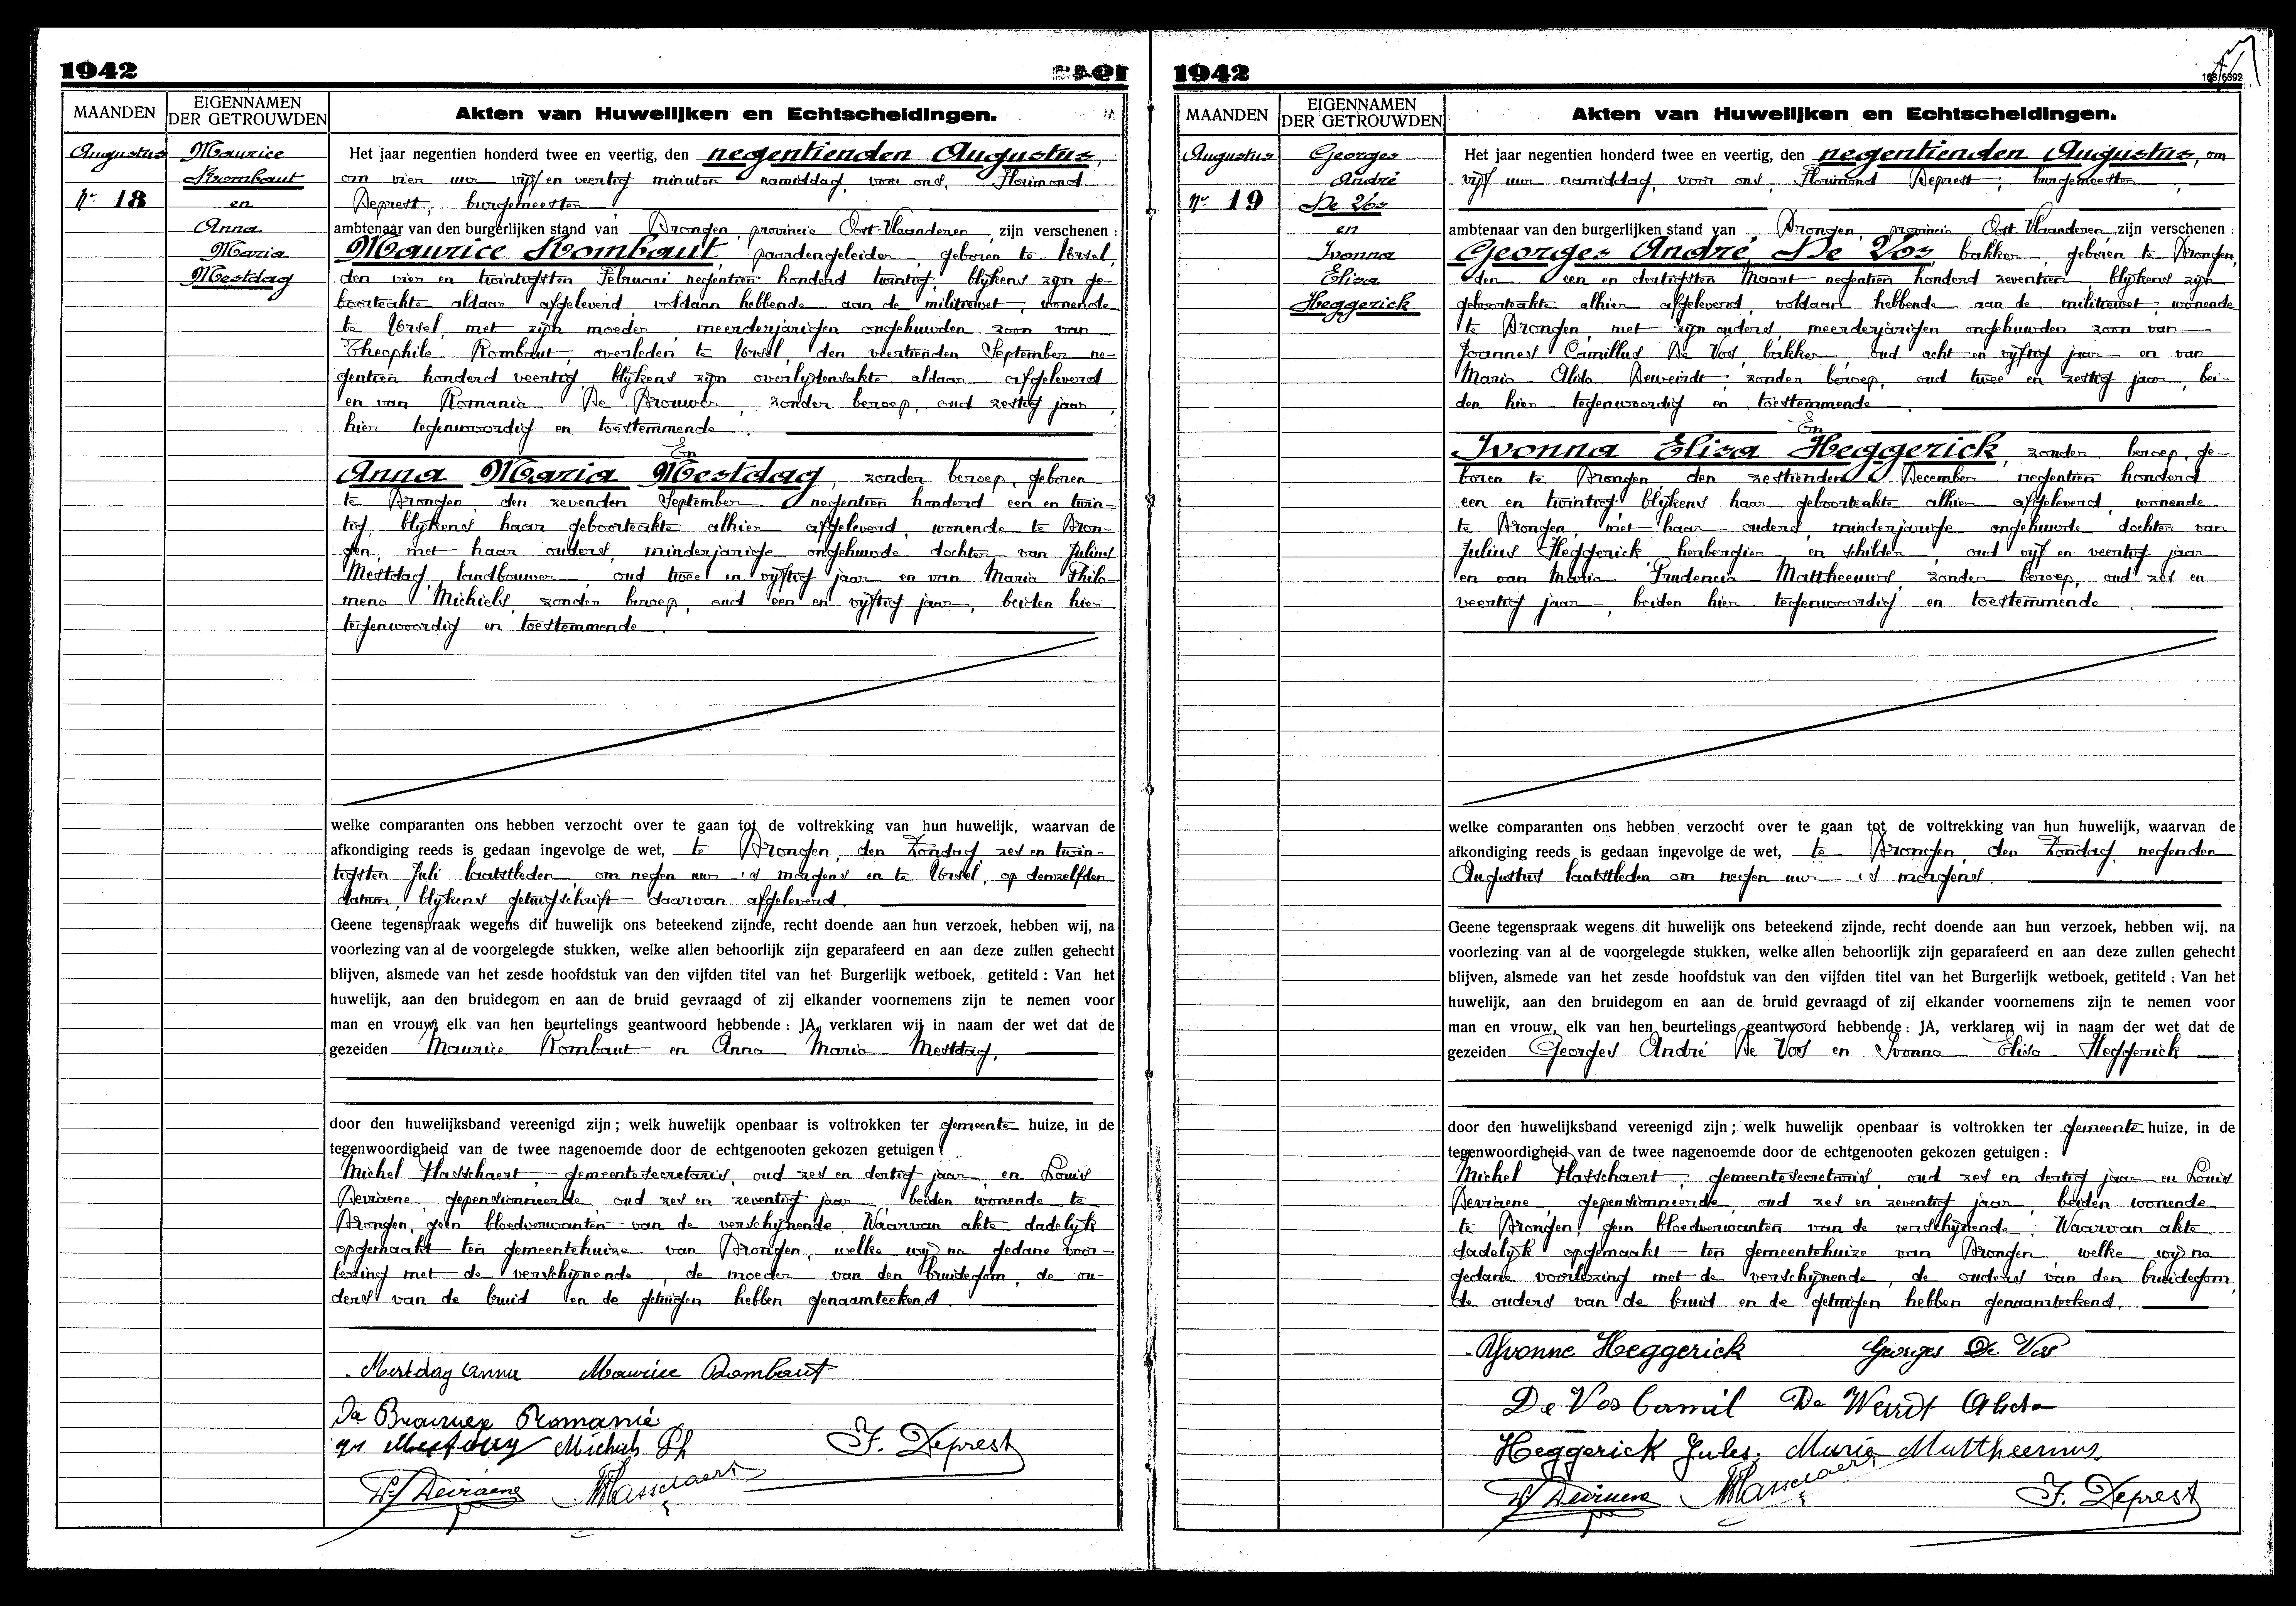 1942
MAANDEN
EIGENNAMEN
DER GETROUWDEN
Akten van Huwelijken en Echtscheidingen.
Augustus
Nr 18
Maurice
Rombaut
en
Anna
Maria
Mestdag
Het jaar negentien honderd twee en veertig, den negentienden Augustus,
om vier uur vijf en veertig minuten namiddag, voor ons, Florimond
Deprest, burgemeester
ambtenaar van den burgerlijken stand van Drongen, provincie Oost-Vlaanderen, zijn verschenen :
Maurice Rombaut, paardengeleider, geboren te Ursel,
den vier en twintigsten Februari negentien honderd twintig, blijkens zijn ge-
boorteakte aldaar afgeleverd voldaan hebbende aan de militiewet, wonende
te Ursel, met zijn moeder, meerderjarigen ongehuwden zoon van
Theophile Rombaut, overleden te Ursel, den veertienden September ne-
gentien honderd veertig, blijkens zijn overlijdensakte aldaar afgeleverd
en van Romanie De Brouwer, zonder beroep, oud zestig jaar,
hier tegenwoordig en toestemmende.
En
Anna Maria Mestdag, zonder beroep, geboren
te Drongen, den zevenden September negentien honderd een en twin-
tig, blijkens haar geboorteakte alhier afgeleverd, wonende te Dron-
gen, met haar ouders, minderjarige ongehuwde dochter van Julius
Mestdag, landbouwer, oud twee en vijftig jaar en van Maria Philo-
mena Michiels, zonder beroep, oud een en vijftig jaar, beiden hier
tegenwoordig en toestemmende.
welke comparanten ons hebben verzocht over te gaan tot de voltrekking van hun huwelijk, waarvan de
afkondiging reeds is gedaan ingevolge de wet, te Drongen, den Zondag zes en twin-
tigsten Juli laatstleden, om negen uur 's morgens en te Ursel, op denzelfden
datum, blijkens getuigschrift daarvan afgeleverd.
Geene tegenspraak wegens dit huwelijk ons beteekend zijnde, recht doende aan hun verzoek, hebben wij, na
voorlezing van al de voorgelegde stukken, welke allen behoorlijk zijn geparafeerd en aan deze zullen gehecht
blijven, alsmede van het zesde hoofdstuk van den vijfden titel van het Burgerlijk wetboek, getiteld : Van het
huwelijk, aan den bruidegom en aan de bruid gevraagd of zij elkander voornemens zijn te nemen voor
man en vrouw, elk van hen beurtelings geantwoord hebbende : JA, verklaren wij in naam der wet dat de
gezeiden Maurice Rombaut en Anna Maria Mestdag,
door den huwelijksband vereenigd zijn ; welk huwelijk openbaar is voltrokken ter gemeente huize, in de
tegenwoordigheid van de twee nagenoemde door de echtgenooten gekozen getuigen :
Michel Hasschaert, gemeentesecretaris, oud zes en dertig jaar, en Louis
Deviaene, gepensionneerde, oud zes en zeventig jaar, beiden wonende te
Drongen, geen bloedverwanten van de verschijnende. Waarvan akte dadelijk
opgemaakt ten gemeentehuize van Drongen, welke wij na gedane voor-
lezing met de verschijnende, de moeder van den bruidegom, de ou-
ders van de bruid en de getuigen hebben genaamteekend.
Mestdag Anna Maurice Rombaut
De Brouwer Romanie
Mestdag Michiels Ph F. Deprest
L. Deviaene MHasschaert
1942
MAANDEN
EIGENNAMEN
DER GETROUWDEN
Akten van Huwelijken en Echtscheidingen.
Augustus
Nr 19
Georges
André
De Vos
en
Ivonna
Eliza
Heggerick
Het jaar negentien honderd twee en veertig, den negentienden Augustus, om
vijf uur namiddag, voor ons, Florimond Deprest, burgemeester,
ambtenaar van den burgerlijken stand van Drongen, provincie Oost-Vlaanderen, zijn verschenen :
Georges André De Vos, bakker, geboren te Drongen,
den een en dertigsten Maart negentien honderd zeventien, blijkens zijn
geboorteakte alhier afgeleverd, voldaan hebbende aan de militiewet, wonende
te Drongen, met zijn ouders, meerderjarigen ongehuwden zoon van
Joannes Camillus De Vos, bakker, oud acht en vijftig jaar en van
Maria Alida Deweirdt, zonder beroep, oud twee en zestig jaar, bei-
den hier tegenwoordig en toestemmende.
En
Ivonna Eliza Heggerick, zonder beroep, ge-
boren te Drongen, den zestienden December negentien honderd
een en twintig blijkens haar geboorteakte alhier afgeleverd, wonende
te Drongen, met haar ouders, minderjarige ongehuwde dochter van
Julius Heggerick herbergier en schilder, oud vijf en veertig jaar
en van Maria Prudencia Mattheeuws, zonder beroep, oud zes en
veertig jaar, beiden hier tegenwoordig en toestemmende.
welke comparanten ons hebben verzocht over te gaan tot de voltrekking van hun huwelijk, waarvan de
afkondiging reeds is gedaan ingevolge de wet, te Drongen, den Zondag, negenden
Augustus laatstleden om negen uur 's morgens.
Geene tegenspraak wegens dit huwelijk ons beteekend zijnde, recht doende aan hun verzoek, hebben wij, na
voorlezing van al de voorgelegde stukken, welke allen behoorlijk zijn geparafeerd en aan deze zullen gehecht
blijven, alsmede van het zesde hoofdstuk van den vijfden titel van het Burgerlijk wetboek, getiteld : Van het
huwelijk, aan den bruidegom en aan de bruid gevraagd of zij elkander voornemens zijn te nemen voor
man en vrouw, elk van hen beurtelings geantwoord hebbende : JA, verklaren wij in naam der wet dat de
gezeiden Georges André De Vos en Ivonna Eliza Heggerick
door den huwelijksband vereenigd zijn ; welk huwelijk openbaar is voltrokken ter gemeente huize, in de
tegenwoordigheid van de twee nagenoemde door de echtgenooten gekozen getuigen :
Michel Hasschaert, gemeentesecretaris, oud zes en dertig jaar en Louis
Deviaene, gepensionneerde, oud zes en zeventig jaar, beiden wonende
te Drongen, geen bloedverwanten van de verschijnende. Waarvan akte
dadelijk opgemaakt ten gemeentehuize van Drongen welke wij na
gedane voorlezing met de verschijnende, de ouders van den bruidegom,
de ouders van de bruid en de getuigen hebben genaamteekend.
Yvonne Heggerick Georges De Vos
De Vos Camil De Weirdt Alida
Heggerick Jules. Maria Mattheeuws.
L. Deviaene MHasschaert F. Deprest